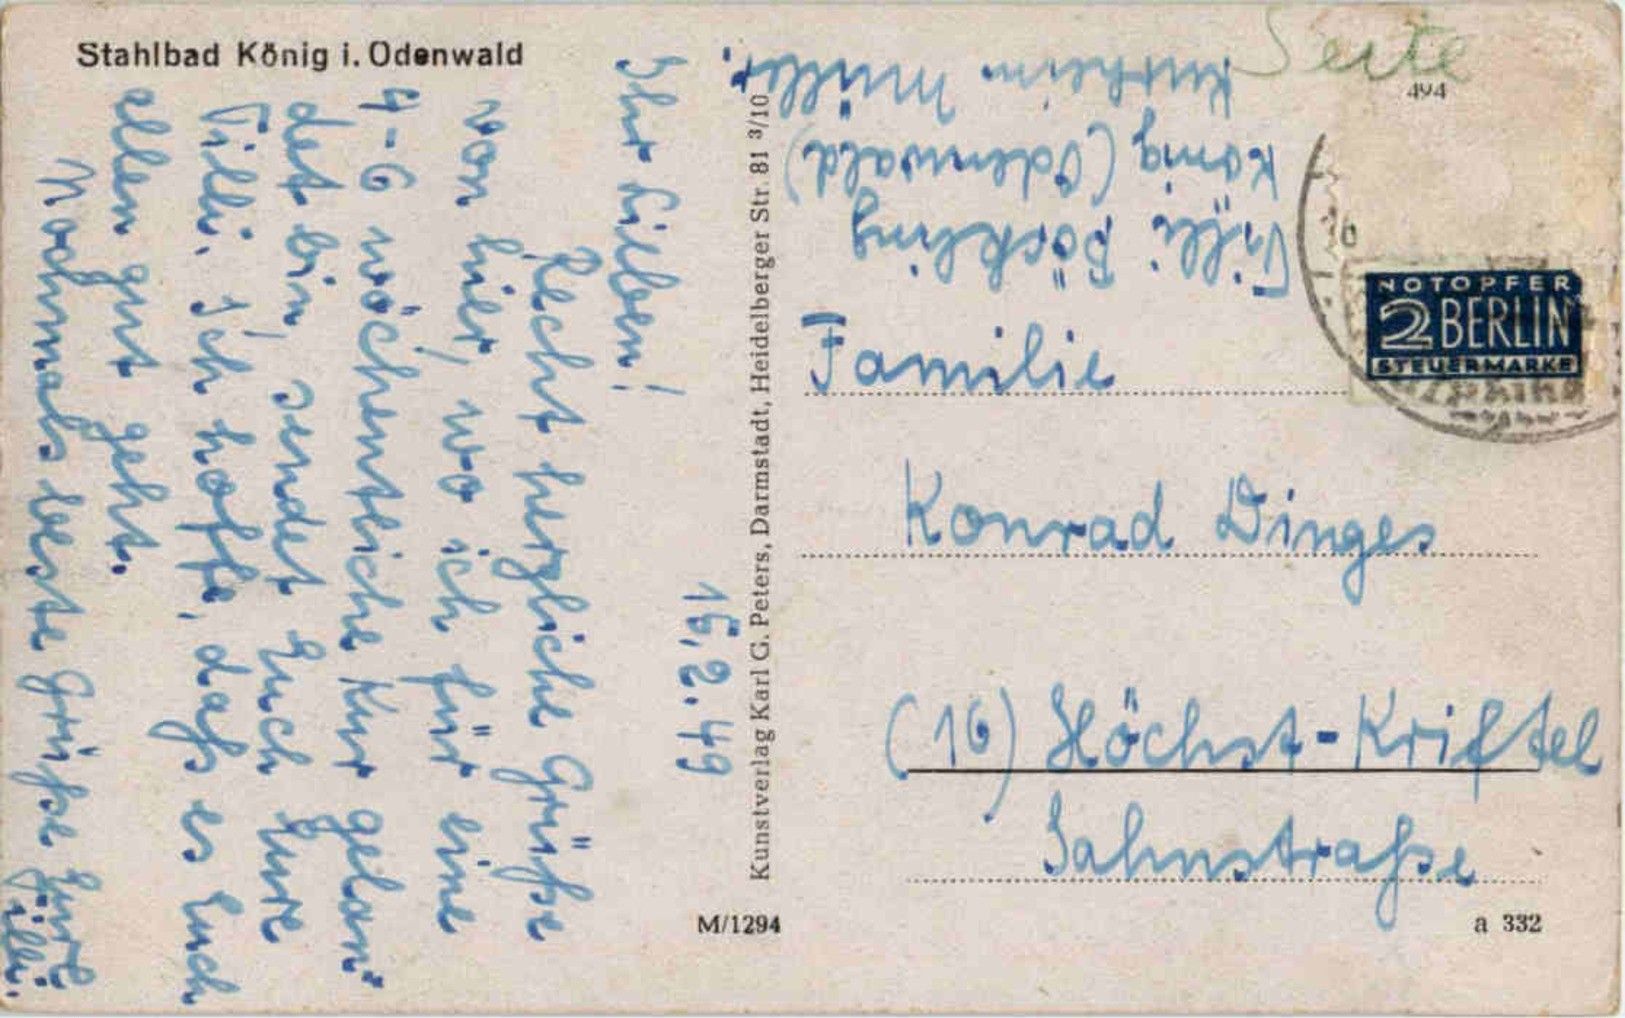 Stahlbad König i. Odenwald
15.2.49
Ihr Lieben!
Recht herzliche Grüße
von hier, wo ich für eine
4-6 wöchentliche Kur geladen
det bin, sendet Euch Eure
Tilli. Ich hoffe, daß es Euch
allen gut geht.
Nochmals beste Grüße Eure
Tilli.
Kunstverlag Karl G. Peters, Darmstadt, Heidelberger Str. 81 3/10
M/1294
Tilli
König (Odenwald)
Kurheim Müller.
Seite
494
NOTOPFER
2 BERLIN
STEUERMARKE
Familie
Konrad Dinges
(16) Höchst-Kriftel
Jahnstraße
a 332